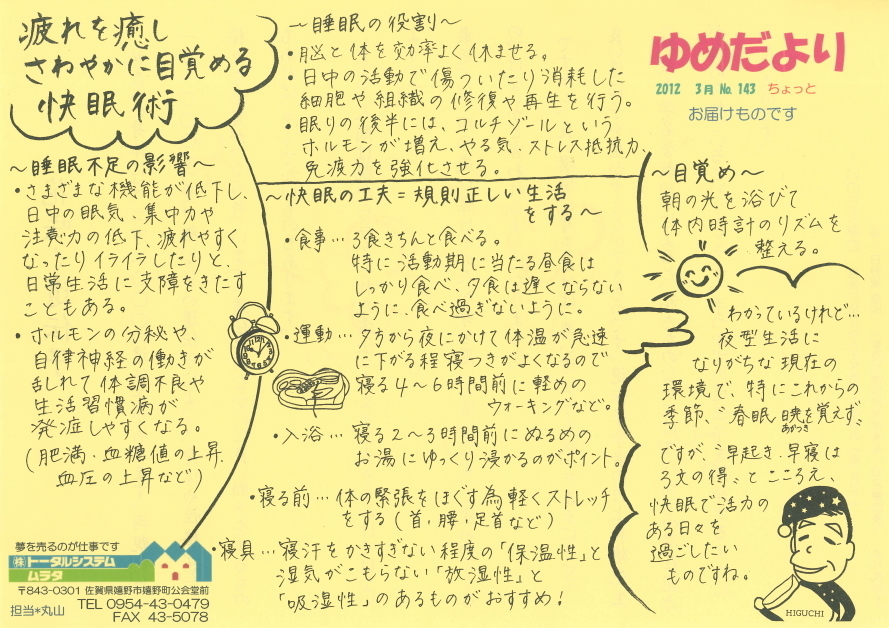 疲れを癒し
さわやかに目覚める
快眠術
～睡眠の役割～
・脳と体を効率よく休ませる。
・日中の活動で傷ついたり消耗した
細胞や組織の修復や再生を行う。
・眠りの後半には、コルチゾールという
ホルモンが増え、やる気、ストレス抵抗力、
免疫力を強化させる。
ゆめだより
2012 3月 No.143 ちょっと
お届けものです
～睡眠不足の影響～
・さまざまな機能が低下し、
日中の眠気、集中力や
注意力の低下、疲れやすく
なったりイライラしたりと、
日常生活に支障をきたす
こともある。
・ホルモンの分秘や、
自律神経の働きが
乱れて体調不良や
生活習慣病が
発症しやすくなる。
(肥満・血糖値の上昇、
血圧の上昇など)
～快眠の工夫=規則正しい生活
をする～
・食事…3食きちんと食べる。
特に活動期に当たる昼食は
しっかり食べ、夕食は遅くならない
ように、食べ過ぎないように。
・運動…夕方から夜にかけて体温が急速
に下がる程寝つきがよくなるので
寝る4～6時間前に軽めの
ウォーキングなど。
・入浴…寝る2～3時間前にぬるめの
お湯にゆっくり浸かるのがポイント。
・寝る前…体の緊張をほぐす為軽くストレッチ
をする(首・腰・足首など)
・寝具…寝汗をかきすぎない程度の「保温性」と
湿気がこもらない「放湿性」と
「吸湿性」のあるものがおすすめ!
～目覚め～
朝の光を浴びて
体内時計のリズムを
整える。
わかっているけれど…
夜型生活に
なりがちな現在の
環境で、特にこれからの
季節、〝春眠暁を覚えず〟
あかつき
ですが、〝早起き、早寝は
3文の得〟とこころえ、
快眠で活力の
ある日々を
過ごしたい
ものですね。
HIGUCHI
夢を売るのが仕事です
㈱トータルシステム
ムラタ
〒843-0301 佐賀県嬉野市嬉野町公会堂前
TEL 0954-43-0479
担当*丸山 FAX 43-5078